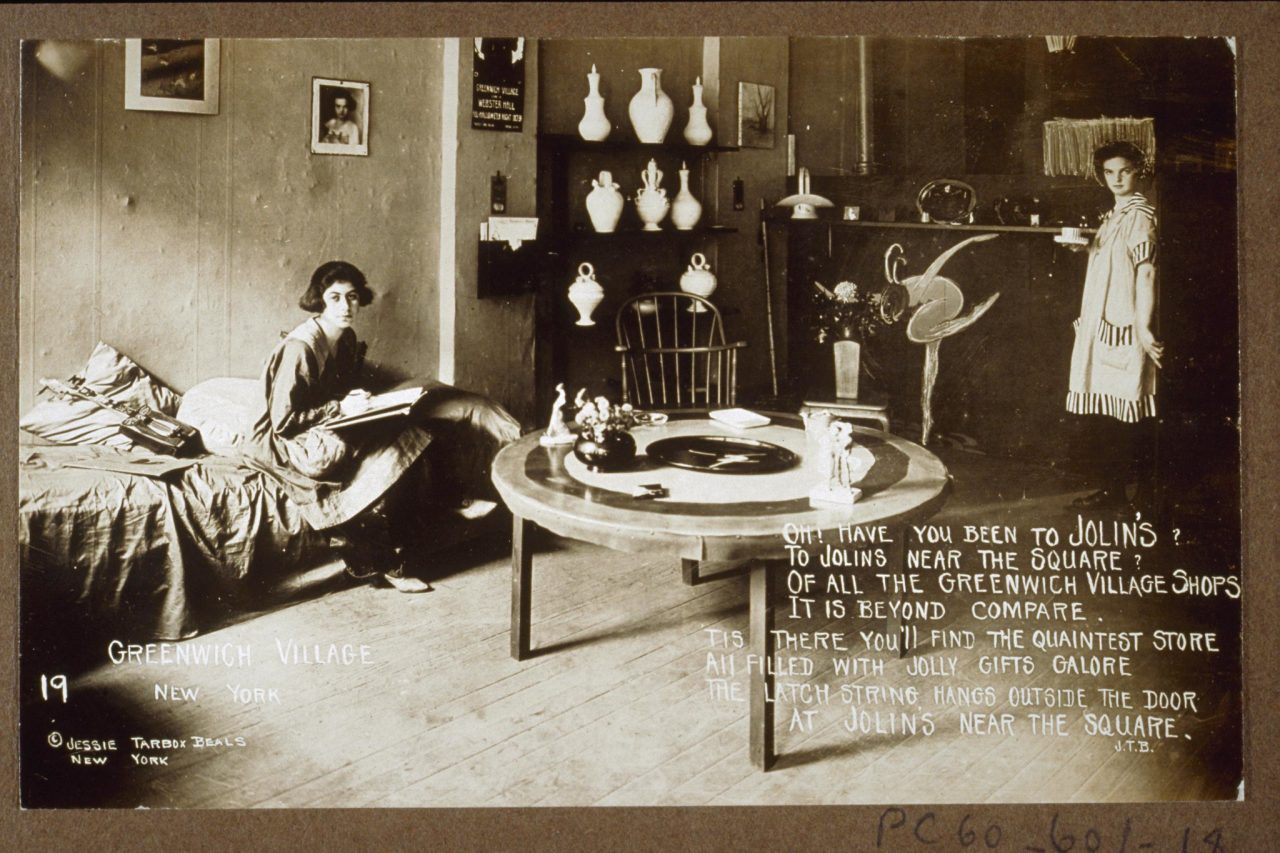 GREENWICH VILLAGE
WEBSTER HALL
OH! HAVE YOU BEEN TO JOLIN'S ?
TO JOLINS NEAR THE SQUARE ?
OF ALL THE GREENWICH VILLAGE SHOPS
IT IS BEYOND COMPARE.
TIS THERE YOU'll FIND THE QUAINTEST STORE
All FILLED WITH JOLLY GIFTS GALORE
THE LATCH STRING HANGS OUTSIDE THE DOOR
AT JOLIN'S NEAR THE SQUARE.
J.T.B.
GREENWICH VILLAGE
NEW YORK
19
© JESSIE TARBOX BEALS
NEW YORK
PC60-601-18